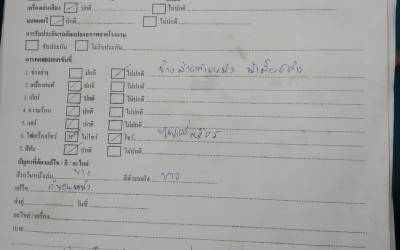 เครื่องเล่นเสียง ✓ ปกติ ไม่ปกติ
แบตเตอรี่ ✓ ปกติ ไม่ปกติ
การรับประกันรถดัดแปลงสภาพจากโรงงาน
รับประกัน ไม่รับประกัน
การทดสอบรถขับขี่
1. ช่วงล่าง ปกติ ✓ ไม่ปกติ
2. เครื่องยนต์ ✓ ปกติ ไม่ปกติ
3. เกียร์ ✓ ปกติ ไม่ปกติ
4. ความร้อน ✓ ปกติ ไม่ปกติ
5. แอร์ ✓ ปกติ ไม่ปกติ
6. ไฟเครื่องโชว์ ไม่โชว์ ✓ โชว์
7. ฟิล์ม ✓ ปกติ ไม่ปกติ
ปัญหาที่ต้องแก้ไข / สี / อะไหล่
สีรถในหน้าเล่ม ขาว สีตัวรถจริง ขาว
แก้ไข
ส่งอู่ วันที่
อะไหล่ / เครื่อง
เบาะ